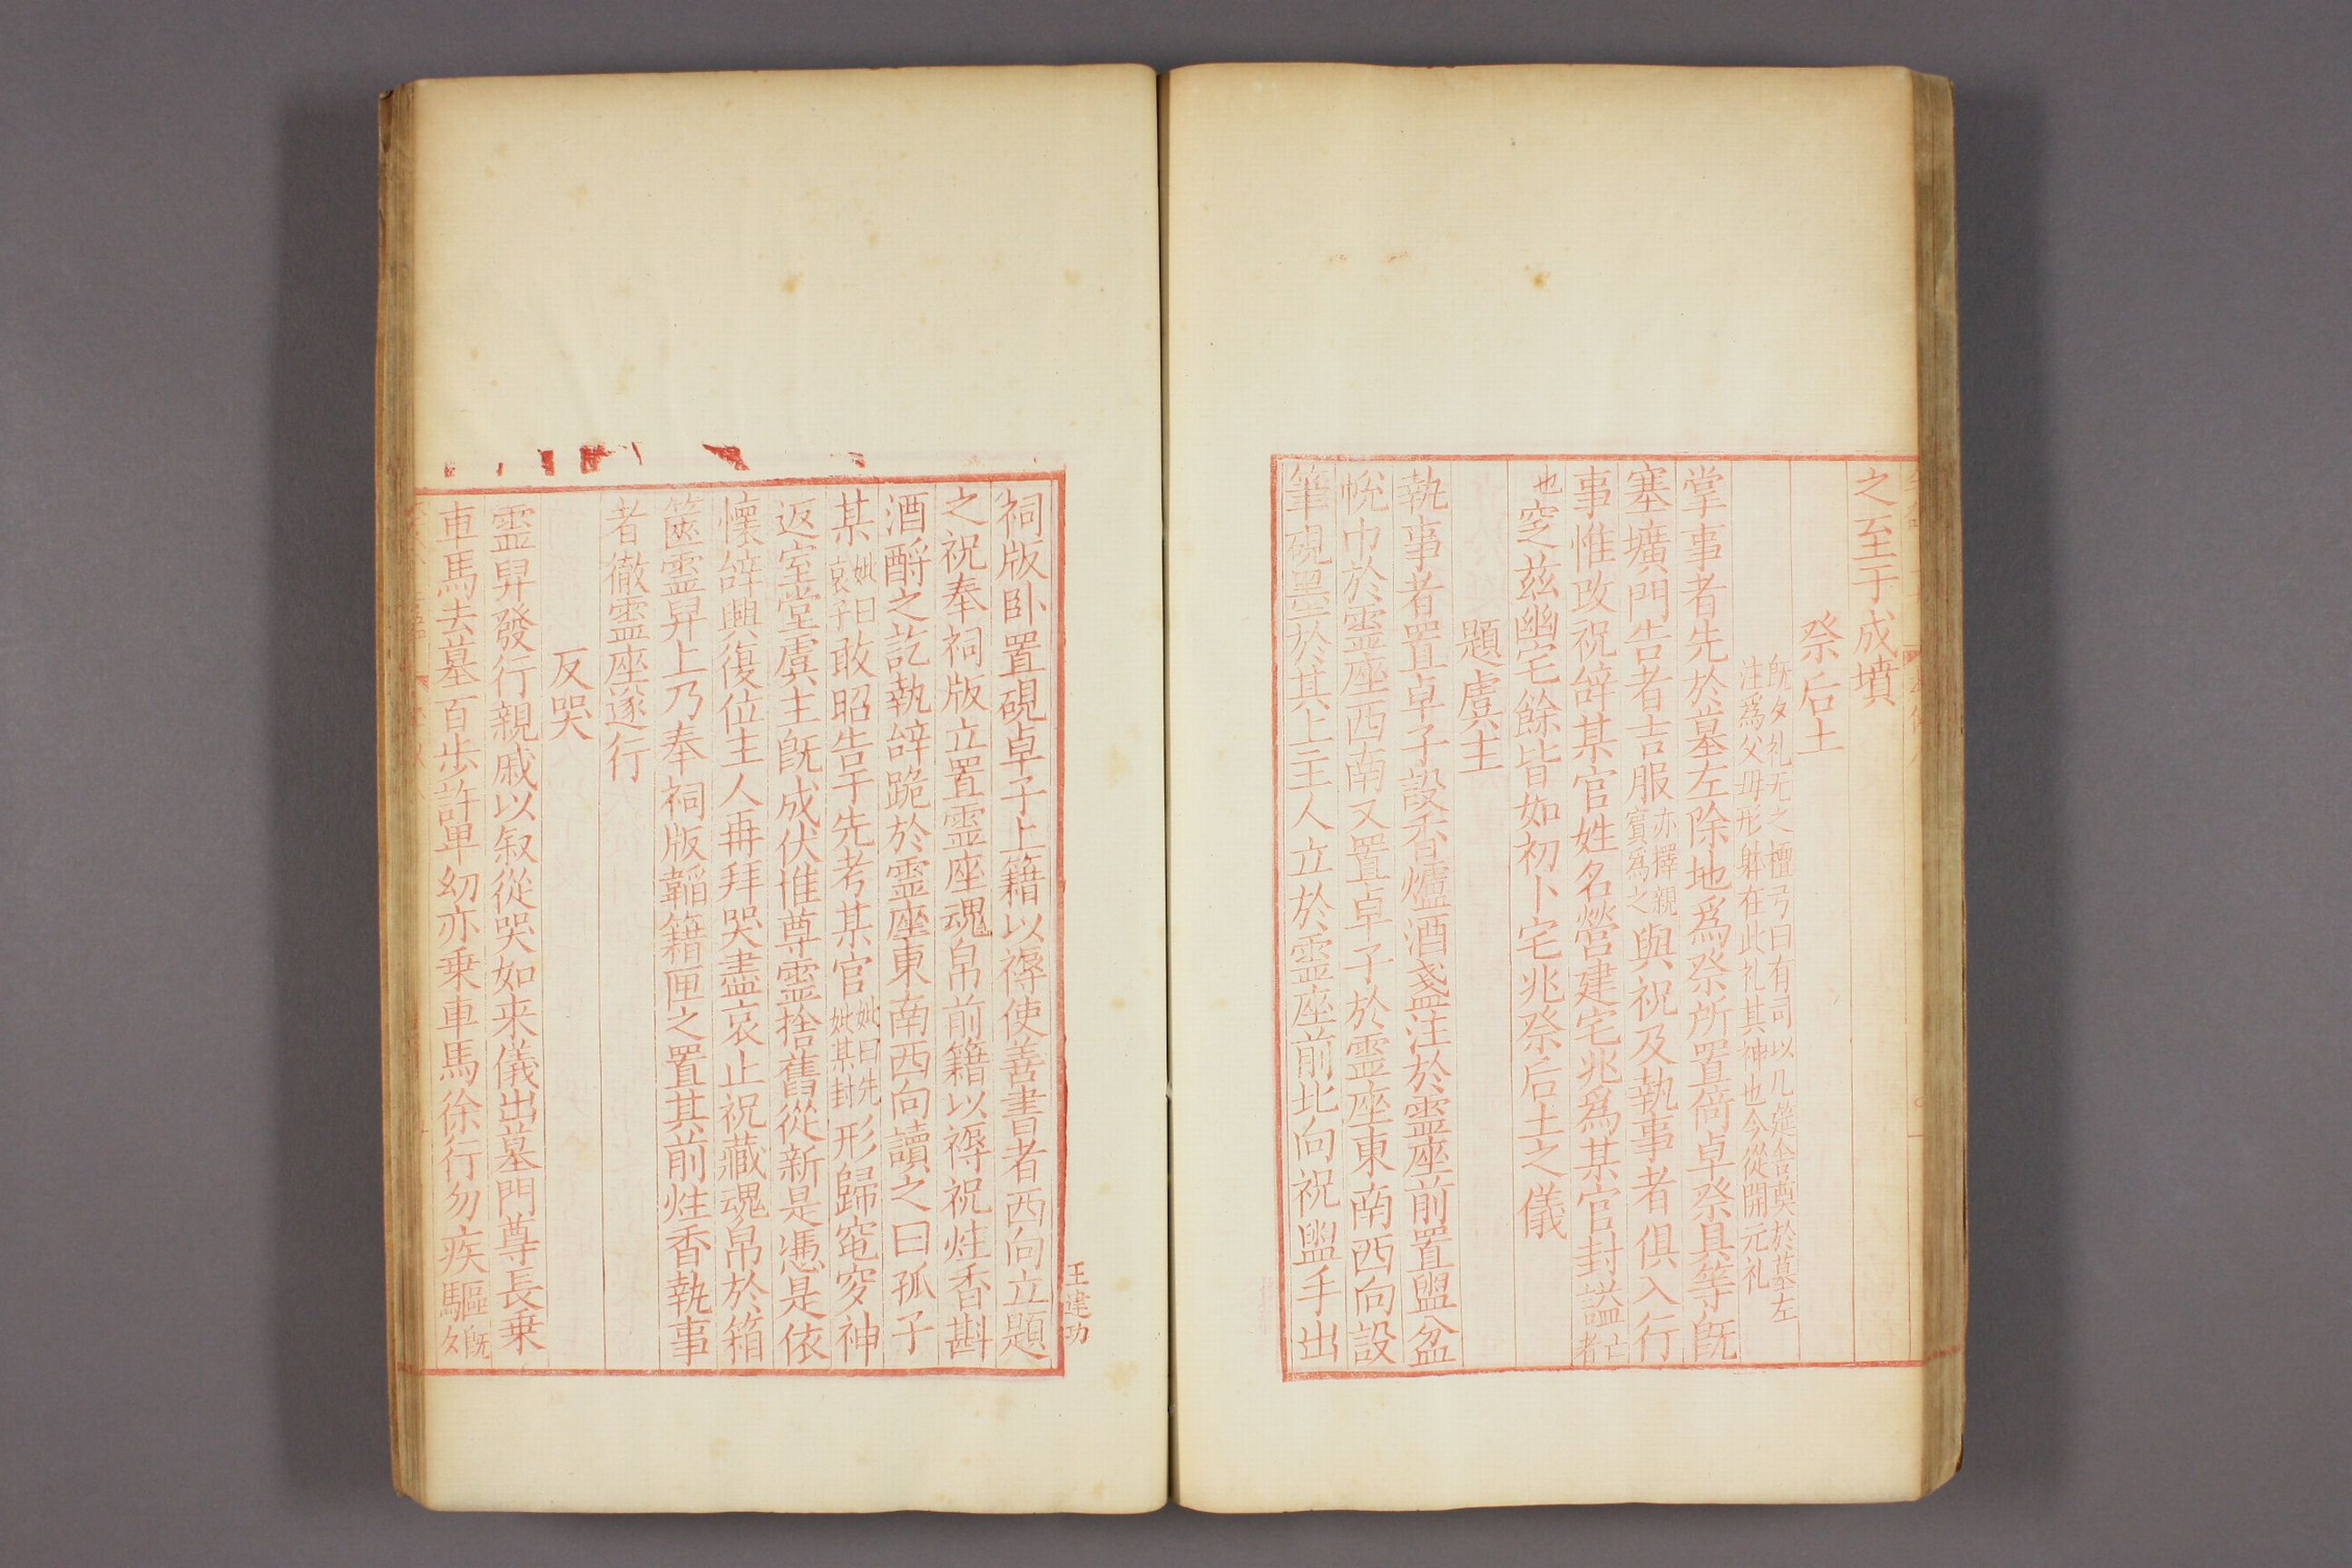 之至于成墳
祭后土
既夕礼无之檀弓曰有司以几筵舎奠於墓左
注爲父毋形躰在此礼其神也今從開元礼
掌事者先於墓左除地爲祭所置倚卓祭具等既
塞壙門告者吉服亦擇親賔爲之與祝及執事者俱入行
事惟改祝辝某官姓名營建宅兆爲某官封謚亡者
也窆茲幽宅餘皆如初卜宅兆祭后土之儀
題虞主
執事者置卓子設香爐酒盞注於靈座前置盥盆
帨巾於靈座西南又置卓子於靈座東南西向設
筆硯墨於其上主人立於靈座前北向祝盥手出
祠版卧置硯卓子上籍以褥使善書者西向立題
之祝奉祠版立置靈座魂帛前籍以褥祝炷香斟
酒酹之訖執辝跪於靈座東南西向讀之曰孤子
某妣曰哀子敢昭告于先考某官妣曰先妣某封形歸窀穸神
返室堂虞主既成伏惟尊靈捨舊從新是憑是依
懷辝興復位主人再拜哭盡哀止祝藏魂帛於箱
篋靈舁上乃奉祠版韜籍匣之置其前炷香執事
者徹靈座遂行
反哭
靈舁發行親戚以叙從哭如来儀出墓門尊長乗
車馬去墓百歩許卑幼亦乗車馬徐行勿疾驅既夕
王建功